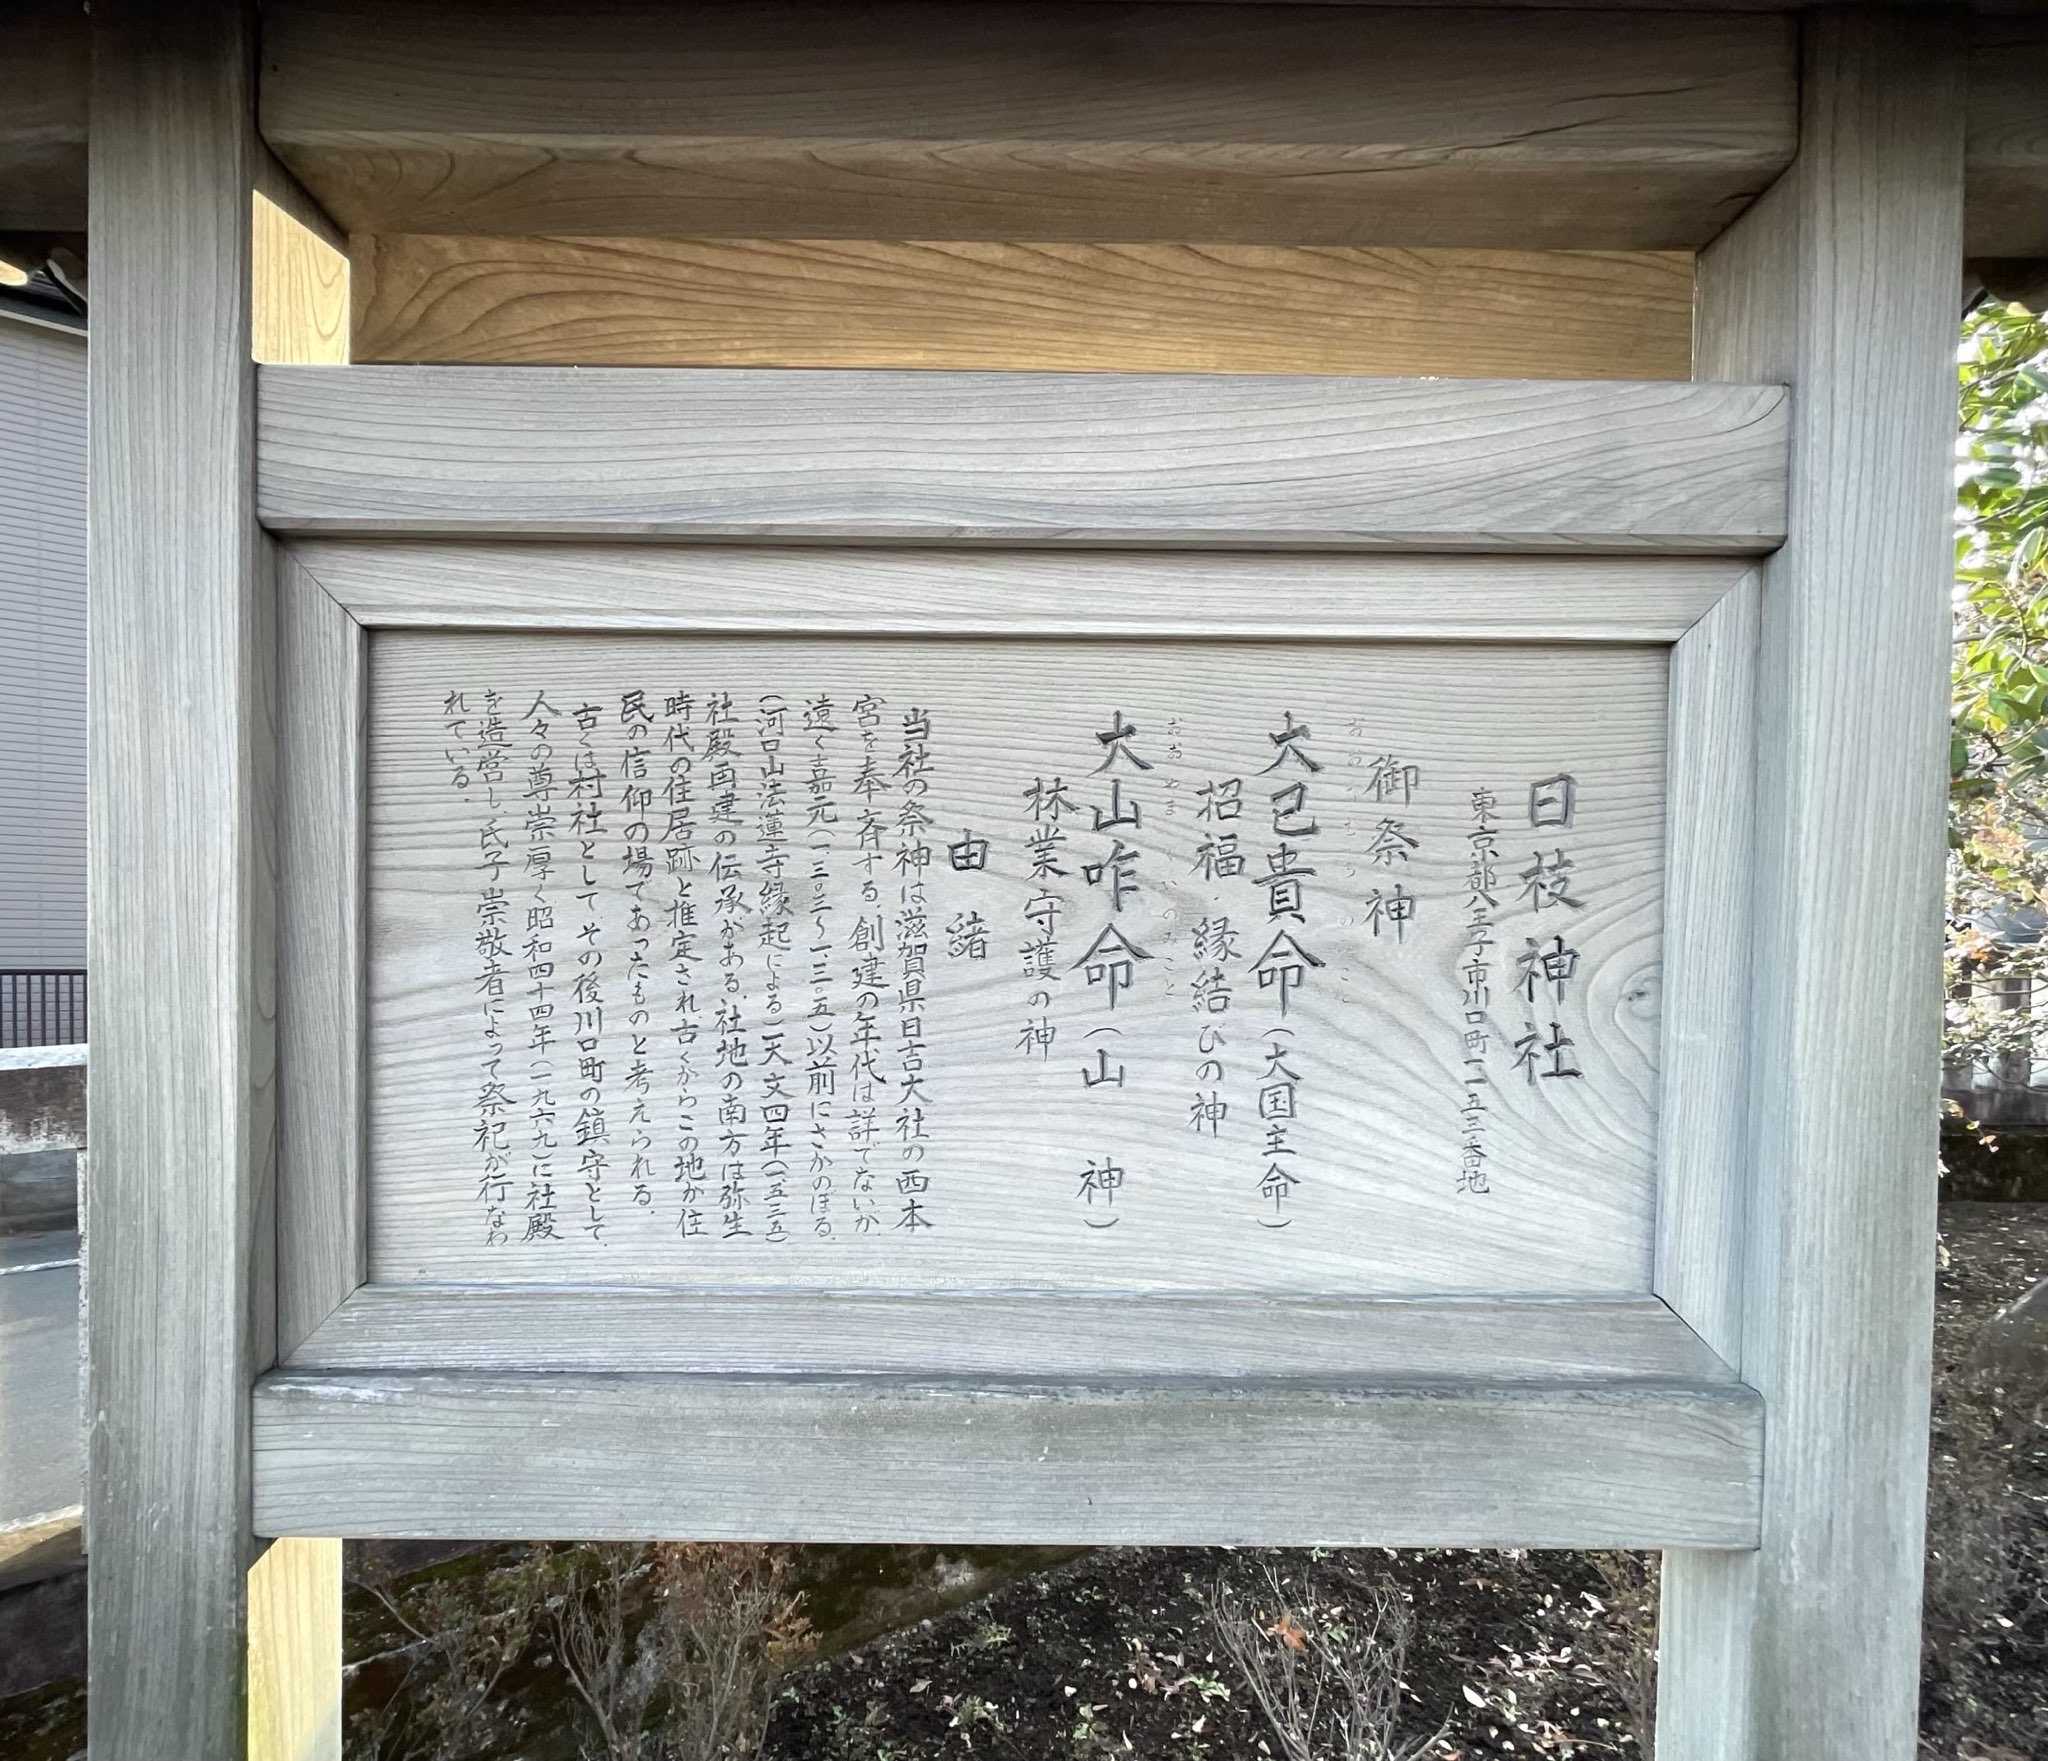 日枝神社
東京都八王子市川口町一一五三番地
御祭神
大己貴命（大国主命）
招福・縁結びの神
おおやまくいのみこと
大山咋命（山　神）
林業守護の神
由緒
当社の祭神は滋賀県日吉大社の西本
宮を奉斉する。創建の年代は詳でないが、
遠く嘉元（一三〇三〜一三〇五）以前にさかのぼる。
（河口山法蓮寺縁起による）天文四年（一五三五）
社殿再建の伝承がある。社地の南方は弥生
時代の住居跡と推定され、古くからこの地が住
民の信仰の場であったものと考えられる。
古くは村社として、その後川口町の鎮守として、
人々の尊崇厚く昭和四十四年（一九六九）に社殿
を造営し、氏子崇敬者によって祭祀が行なわ
れている。